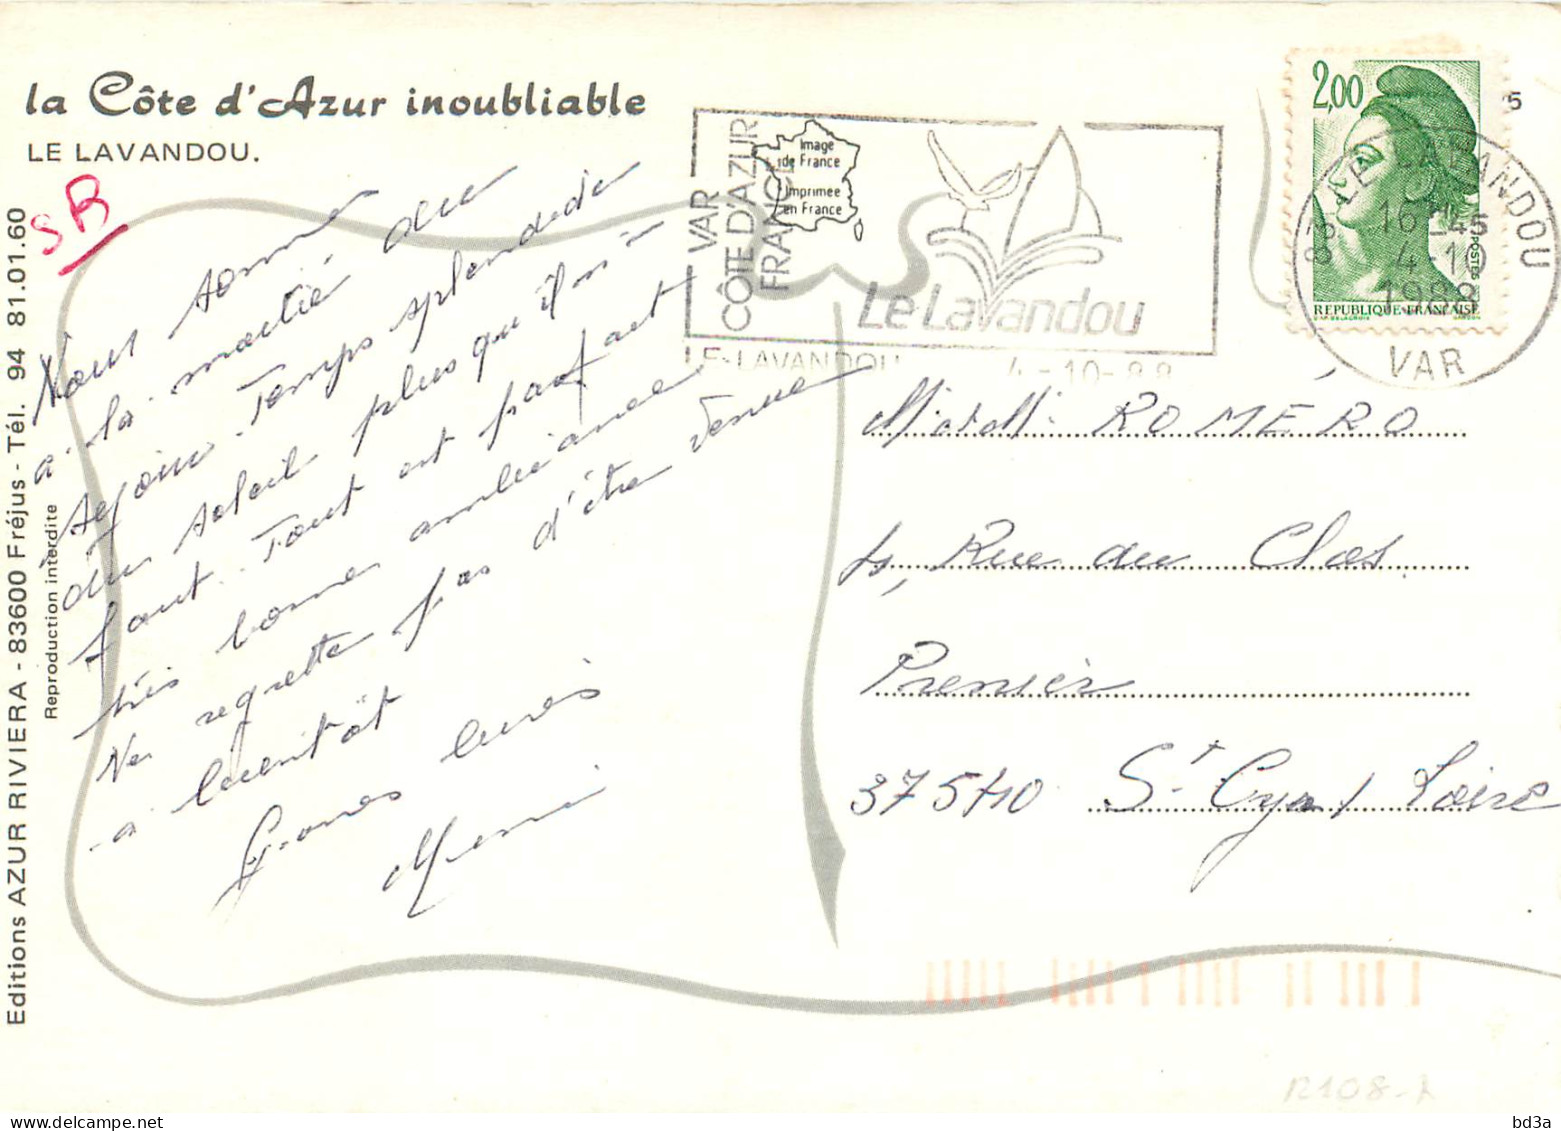 la Côte d'Azur inoubliable
LE LAVANDOU.
SR
Editions AZUR RIVIERA - 83600 Fréjus - Tél. 94 81.01.60
Reproduction interdite
Nous somme
a la moitié du
séjour. Temps splendide
du soleil plus qu'il n'
faut. Tout est parfait
très bonne ambiance
Ne regrette pas d'être venue
a bientôt
Grosses bises
VAR
CÔTE D'AZUR
FRANCE
Image
de France
Imprimée
en France
Le Lavandou
LE-LAVANDOU 4-10-88
2,00
POSTES
REPUBLIQUE FRANÇAISE
D'AP. DELACROIX GANDON
83 LE LAVANDOU
16H45
4-10
1988
VAR
5
M. et M. ROMÉRO
4, Rue du Clos
Prensier
37540 St Cyr / Loire
12108-A
bd3a